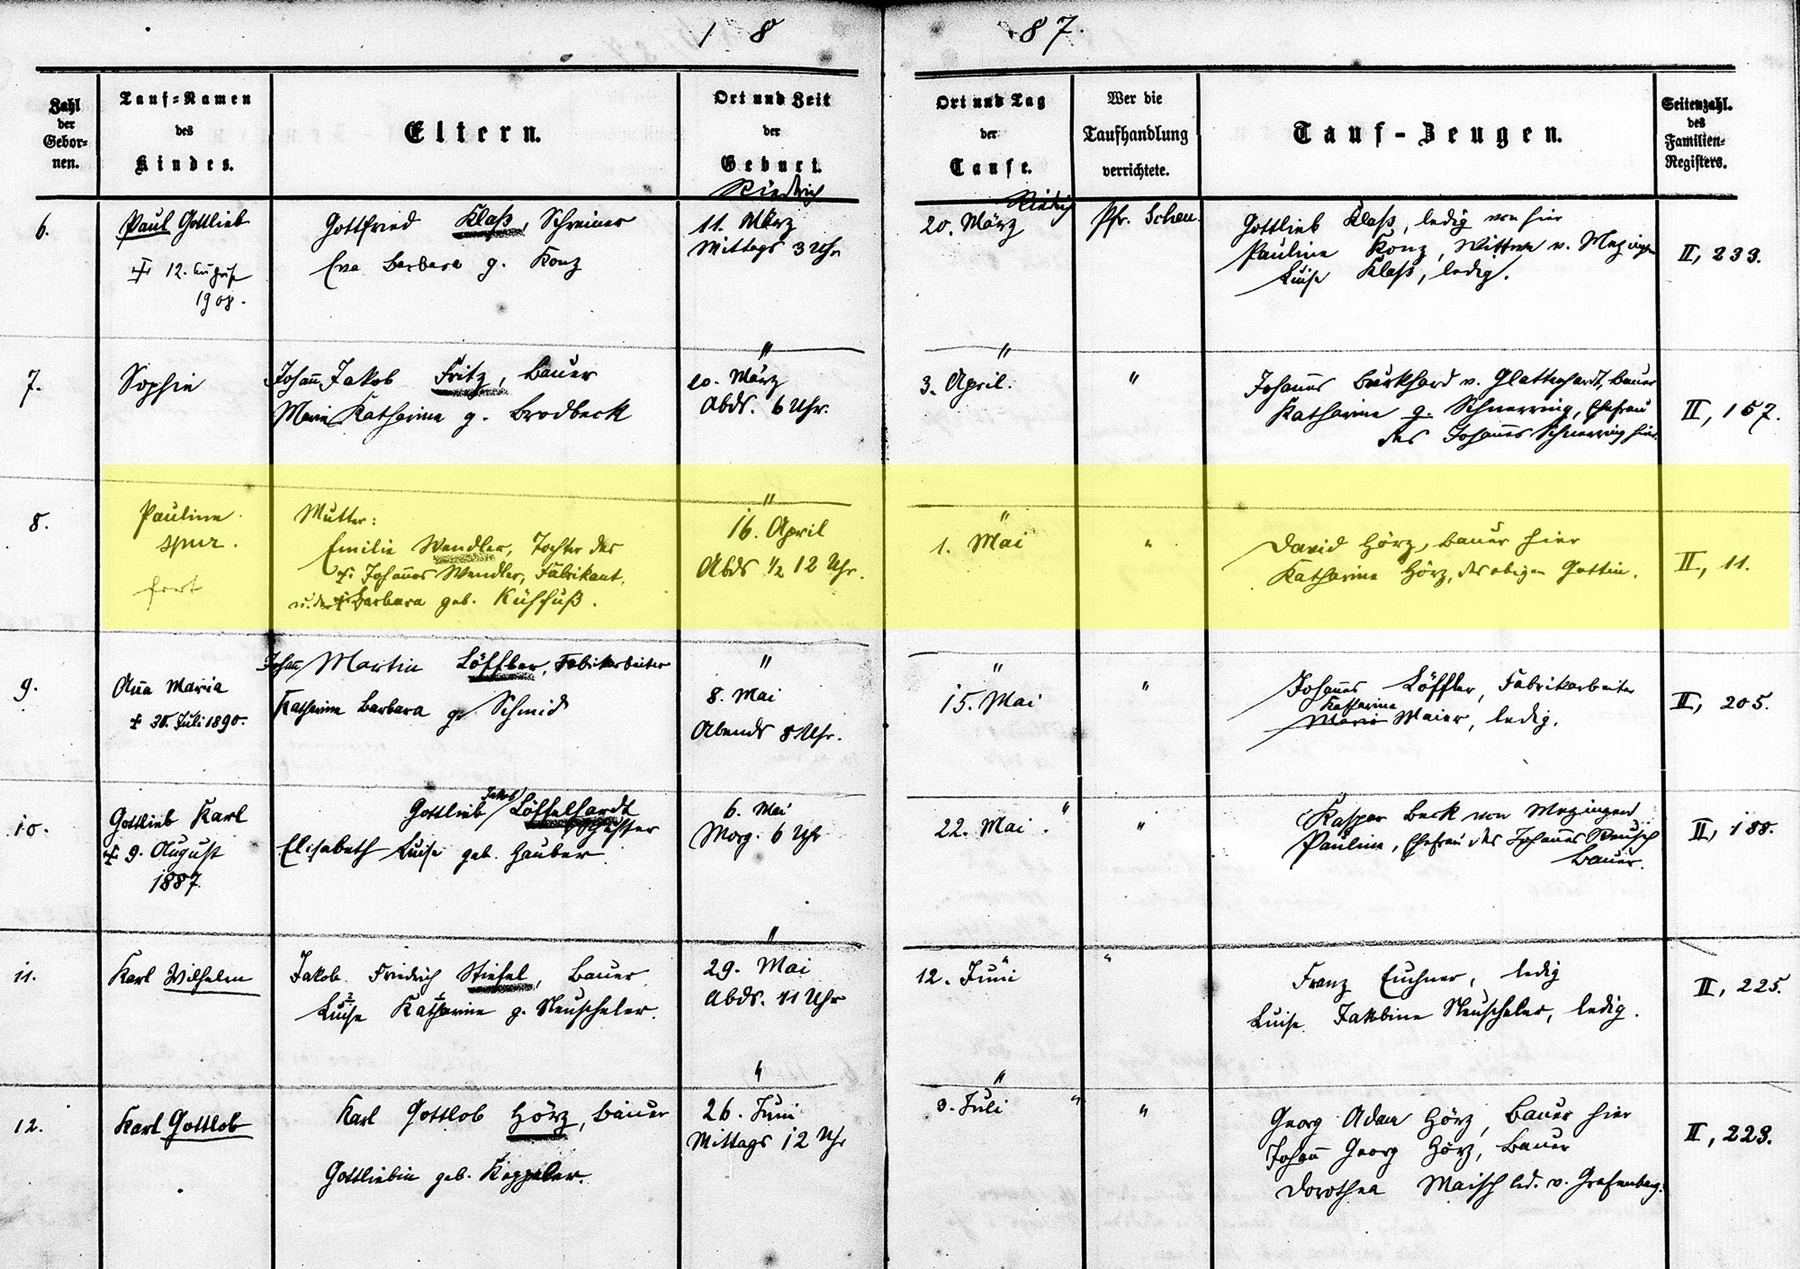 1 8 87.
Zahl der Gebornen.
Tauf-Namen des Kindes.
Eltern.
Ort und Zeit der Geburt.
Ort und Tag der Taufe.
Wer die Taufhandlung verrichtete.
Tauf-Zeugen.
Seitenzahl. des Familien-Registers.
6.
Paul Gottlieb
12. August
1908.
Gottfried Klaß, Schreiner
Eva Barbara g. Konz
Riedrich
11. März
Mittags 3 Uhr
20. März
Pfr. Scheu
Gottlieb Klaß, ledig von hier
Pauline Konz, Wittwe v. Mezingen
Luise Klaß, ledig.
II, 233.
7.
Sophie
Johann Jakob Fritz, Bauer
Maria Katharina g. Brodbeck
"
20. März
Abds. 6 Uhr.
"
3. April.
"
Johannes Burkhard v. Bauer
Katharina g. Schnerring, Ehefrau
des Johannes Schnerring hier.
II, 157.
8.
Pauline
spur.
fort
Mutter:
Emilie Wendler, Tochter des
† Johannes Wendler, Fabrikant,
u. der † Barbara geb. Kühfuß.
"
16. April
Abds ½ 12 Uhr.
"
1. Mai
"
David Hörz, Bauer hier
Katharina Hörz, des obigen Gattin.
II, 11.
9.
Anna Maria
† 30. Juli 1890.
Johann Martin Löffler, Fabrikarbeiter
Katharina Barbara g. Schmid
"
8. Mai
Abends 8 Uhr.
"
15. Mai
"
Johannes Löffler, Fabrikarbeiter
Katharina
Maria Maier, ledig.
II, 205.
10.
Gottlieb Karl
† 9. August
1887
Jakob
Gottlieb Löffelhardt
Elisabeth Luise geb. Gauber
6. Mai
Morg. 6 Uhr
22. Mai "
"
Kaspar Beck von Mezingen
Pauline, Ehefrau des Johannes Reusch
Bauer.
II, 188.
11.
Karl Wilhelm
Jakob Friedrich Stiefel, Bauer
Luise Katharine g. Neuscheler.
"
29. Mai
Abds. 11 Uhr
"
12. Juni
"
Franz Euchner, ledig
Luise Jakobine Neuscheler, ledig.
II, 225.
12.
Karl Gottlob
Karl Gottlob Hörz, Bauer
Gottliebin geb. Keppeler.
"
26. Juni
Mittags 12 Uhr
"
3. Juli "
"
Georg Adam Hörz, Bauer hier
Johann Georg Hörz, Bauer
Dorothea Maisch led. v. Grafenberg.
II, 223.